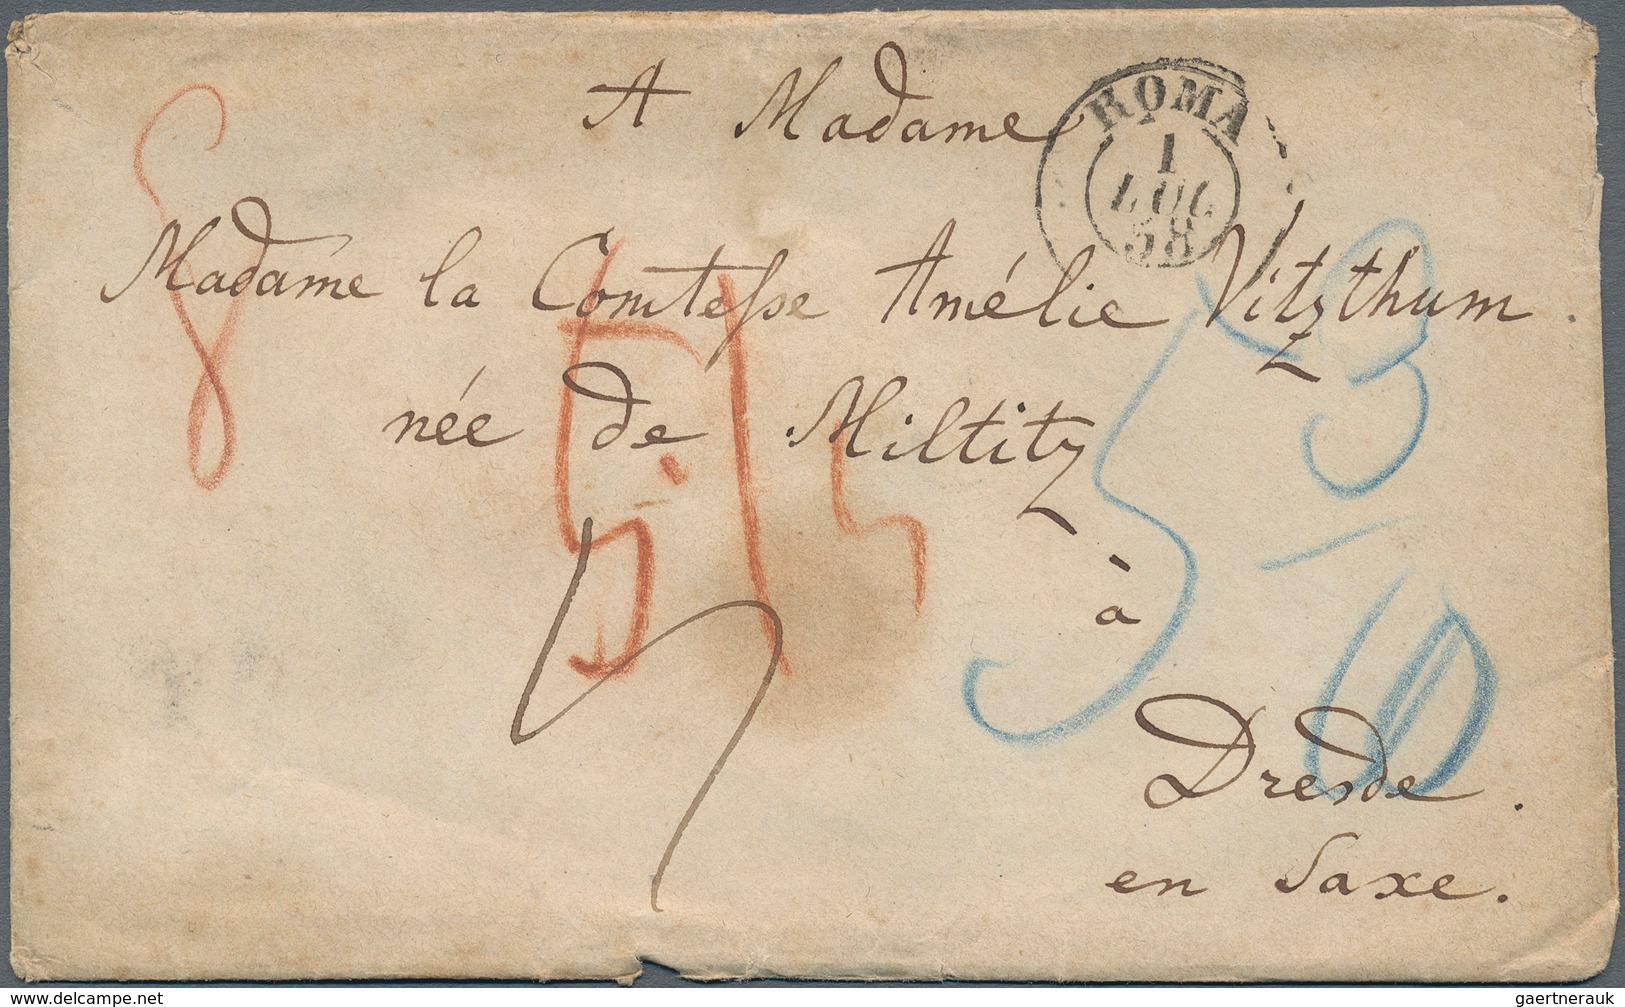 A Madame
ROMA
1
LUG
58
Madame la Comtesse Amélie Vitzthum
née de Miltitz
à
Dresde.
en Saxe.
www.delcampe.net
gaertnerauk